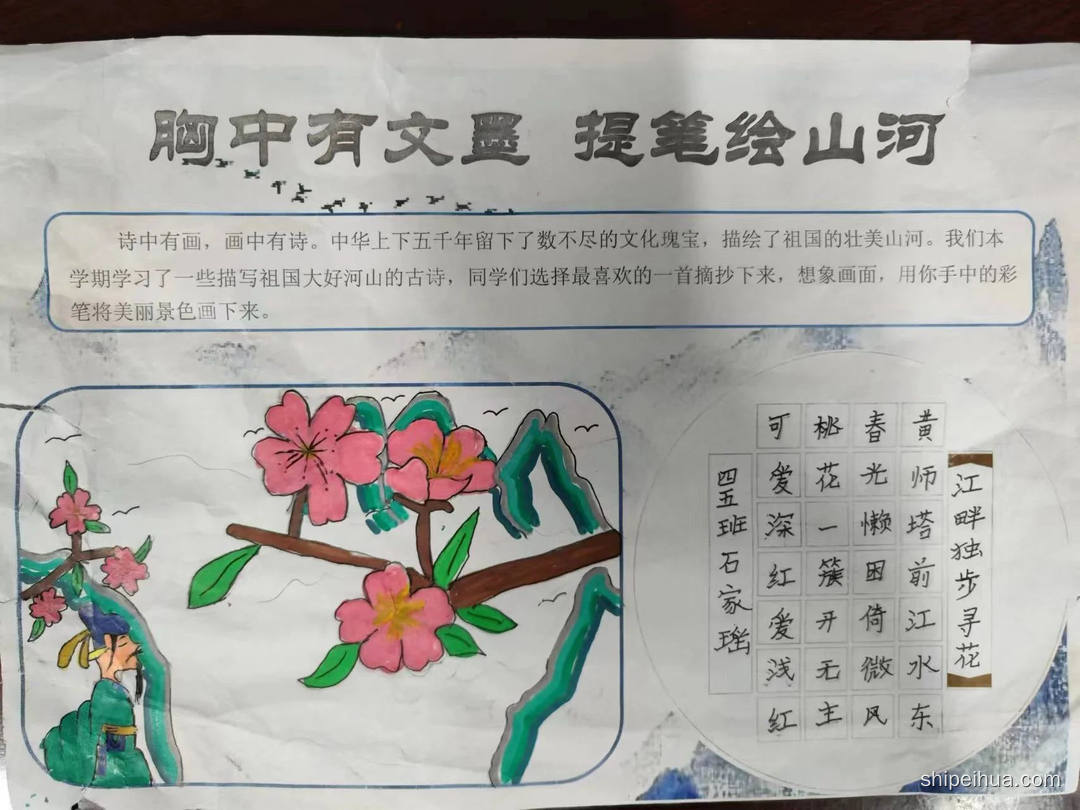 胸中有文墨 提笔绘山河
诗中有画，画中有诗。中华上下五千年留下了数不尽的文化瑰宝，描绘了祖国的壮美山河。我们本
学期学习了一些描写祖国大好河山的古诗，同学们选择最喜欢的一首摘抄下来，想象画面，用你手中的彩
笔将美丽景色画下来。
江畔独步寻花
黄师塔前江水东
春光懒困倚微风
桃花一簇开无主
可爱深红爱浅红
四五班石家瑶
shipeihua.com